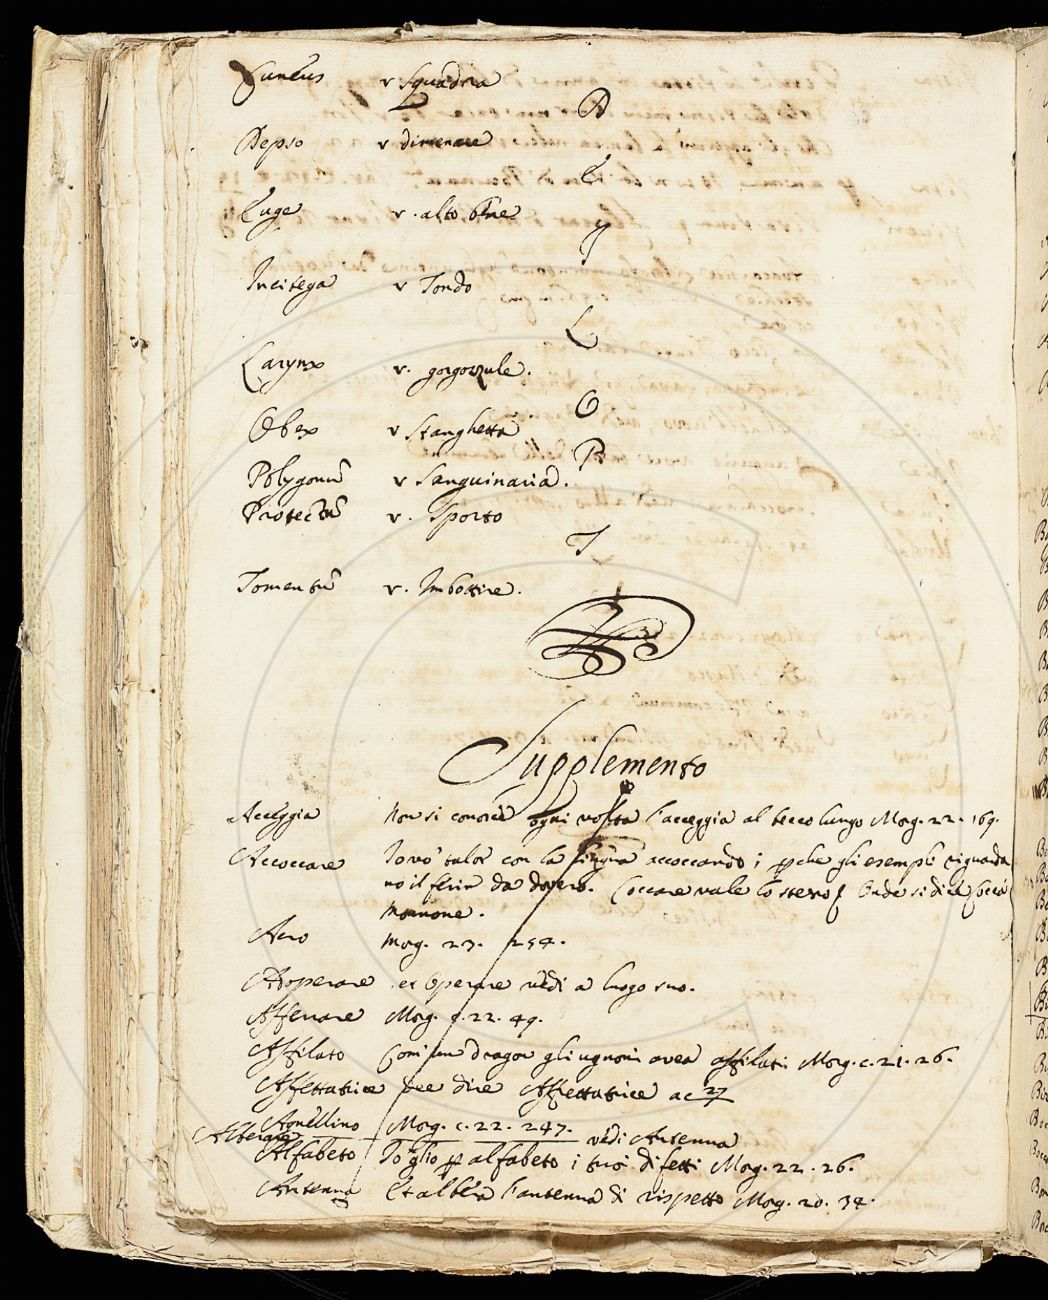 Cuneus v Squadra
D
Depso v dimenare
E
Euge v. alto bñe
I
Incitega v Tondo
L
Larynx v. gorgozzule.
O
Obex v Stanghetta
P
Polygonũ v Sanguinaria.
Protectũ v. Sporto
T
Tomentũ v. Imbottire.
Supplemento
Acceggia Non si conosce ogni volta l'acceggia al becco lungo Morg. 22. 169.
Accoccare Io vo' talor con la lingua accoccando i ꝑche gli esempli riguarda
no il ferir da dovero. Coccare vale lo stesso Onde si dice Cocca
Monnone.
Acro Morg. 23. 254.
Adoperare et Operare vedi a luogo suo.
Afferrare Morg. c. 22. 49.
Affilato Com'un dragon gli ugnoni avea affilati Morg. c. 21. 26.
Affettatrice per dire Affrettatrice ac 27
Agnellino Morg. c. 22. 247.
Alberare vedi Antenna
Alfabeto To'glio ꝑ alfabeto i tuoi difetti Morg. 22. 26.
Antenna Et alberà l'antenna di rispetto Morg. 20. 34.